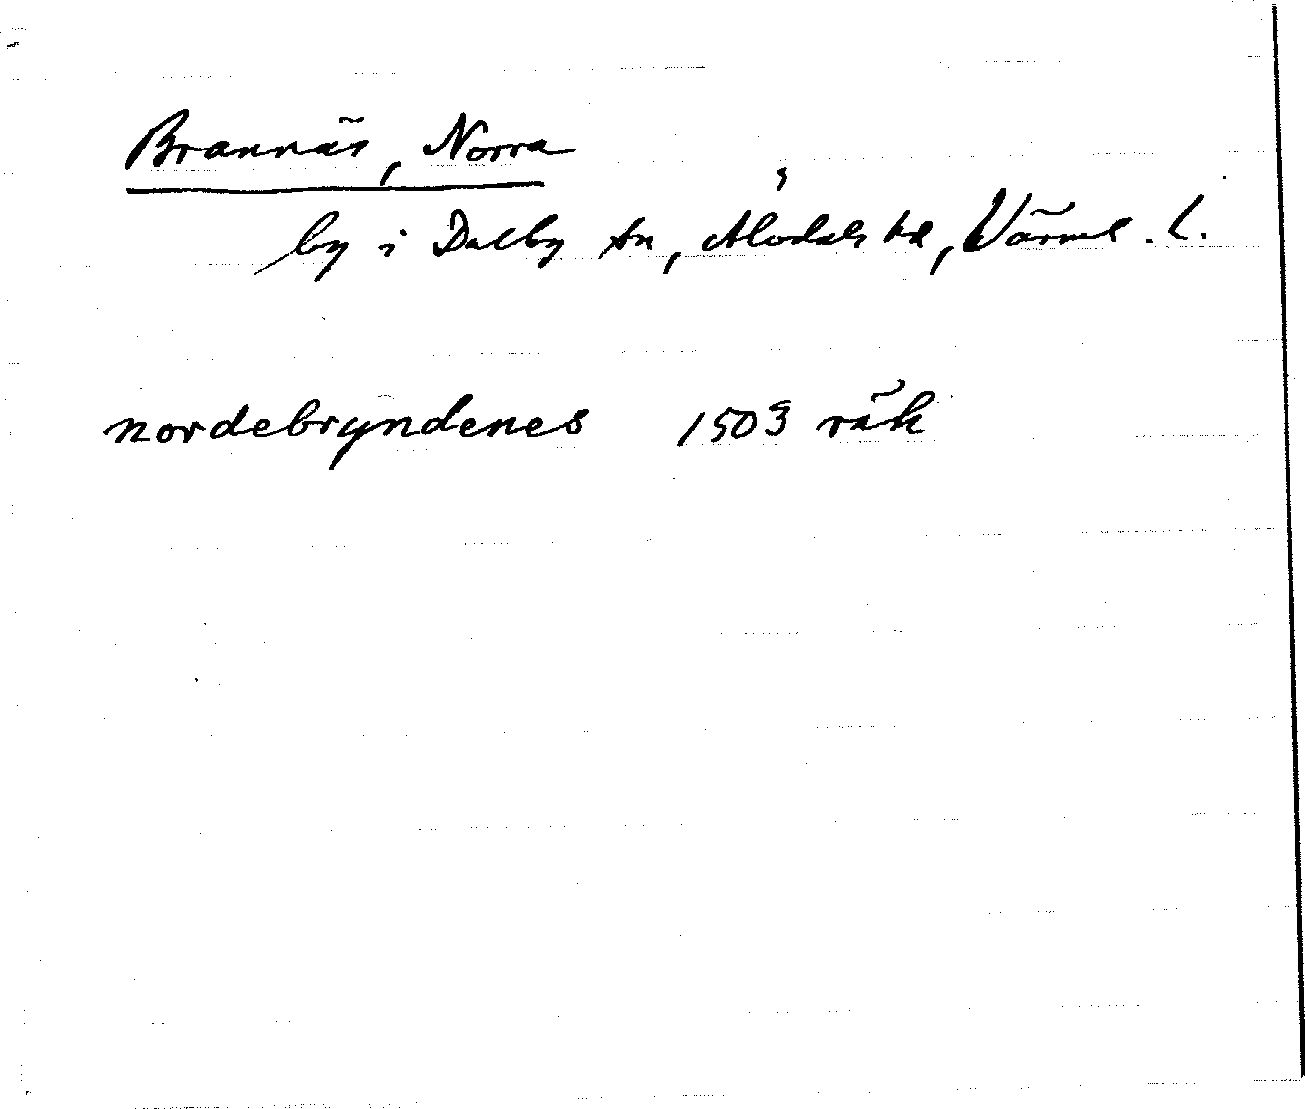 Brannäs, Norra
by i Dalby sn, Älvdals hd, Värml. l.
nordebryndenes 1503 räk